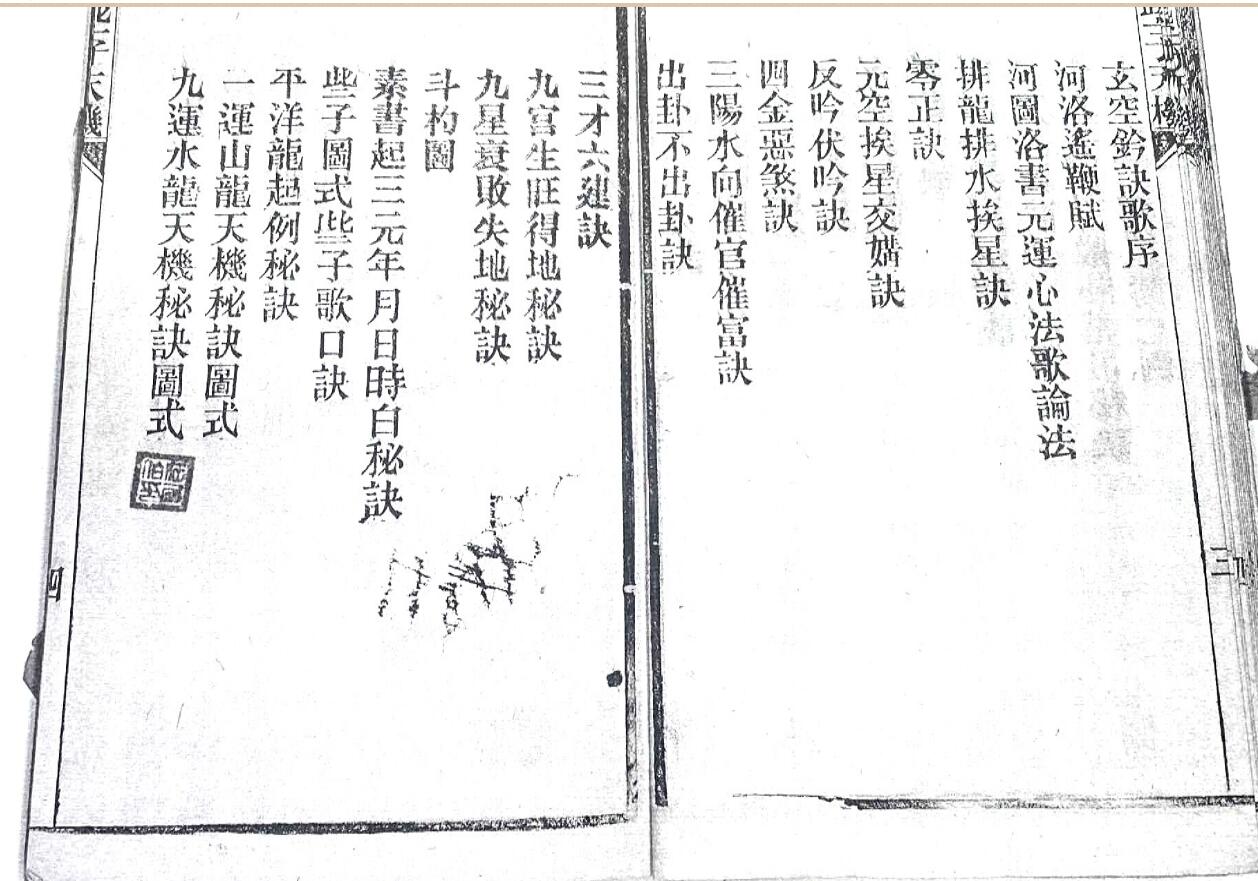 玄空鈐訣歌序
河洛遙鞭賦
河圖洛書元運心法歌論法
排龍排水挨星訣
零正訣
元空挨星交媾訣
反吟伏吟訣
四金惡煞訣
三陽水向催官催富訣
出卦不出卦訣
三才六建訣
九宮生旺得地秘訣
九星衰敗失地秘訣
斗杓圖
素書起三元年月日時白秘訣
些子圖式些子歌口訣
平洋龍起例秘訣
一運山龍天機秘訣圖式
九運水龍天機秘訣圖式
些子天機
四